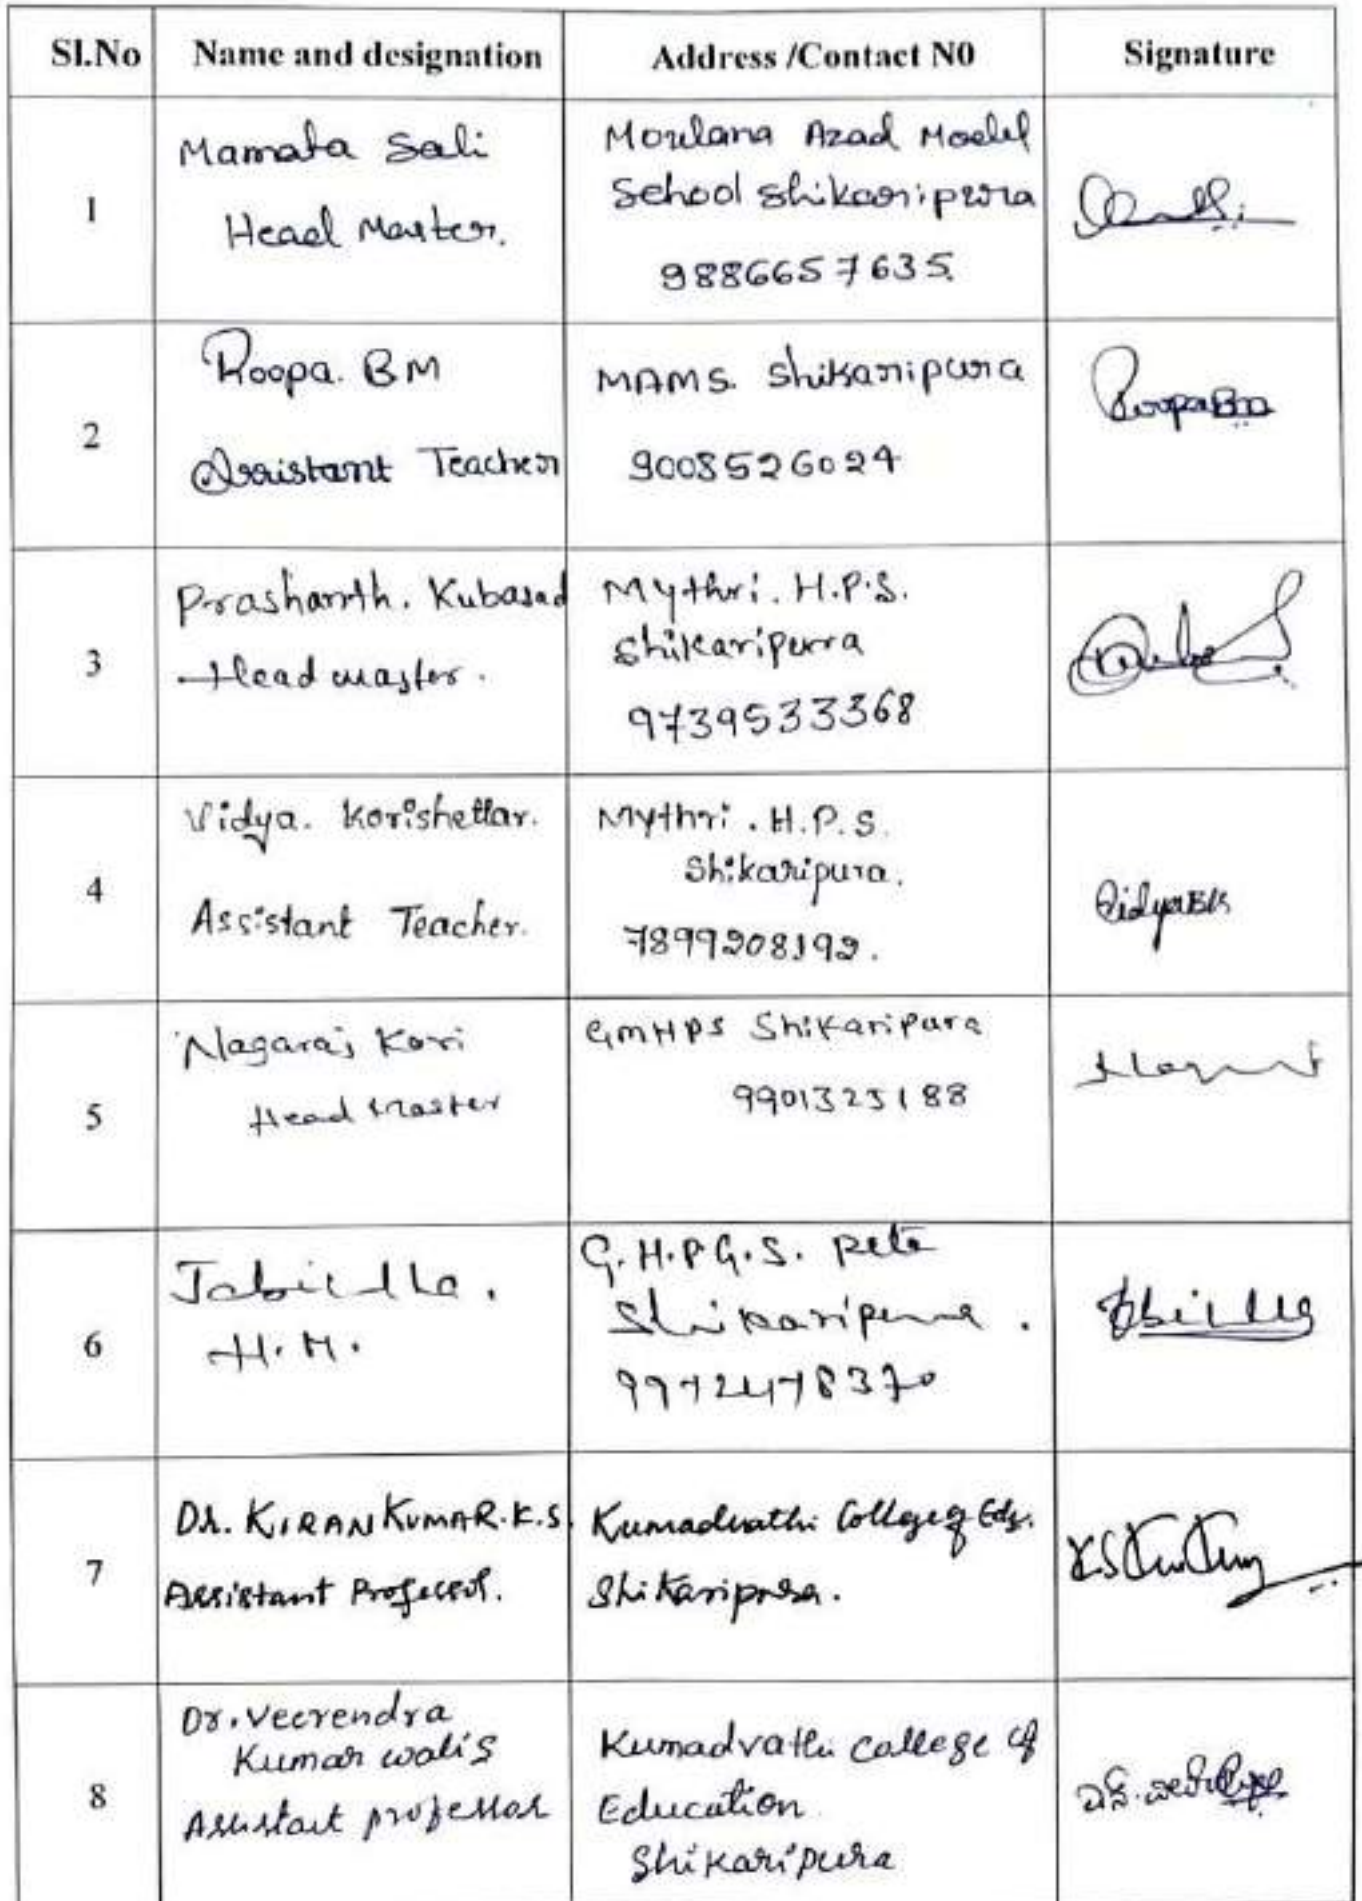 Sl.No Name and designation Address /Contact N0 Signature
1
Mamata Sali
Head Master.
Moulana Azad Model
School Shikaripura
9886657635
2
Roopa. BM
Assistant Teacher
MAMS. Shikaripura
9008526024
Roopa BM
3
Prashanth. Kubasad
Head master.
Mythri. H.P.S.
Shikaripura
9739533368
4
Vidya. Korishettar.
Assistant Teacher.
Mythri. H.P.S.
Shikaripura.
7899208192.
VidyaBK
5
Nagaraj Kori
Head Master
GMHPS Shikaripura
9901325188
6
H.M.
G.H.P.G.S. pete
Shikaripura.
9972478370
7
Dr. KIRAN KUMAR. K.S.
Assistant Professor.
Kumadvathi College of Edn.
Shikaripura.
8
Dr. Veerendra
Kumar Walis
Assistant professor
Kumadvathi college of
Education
Shikaripura